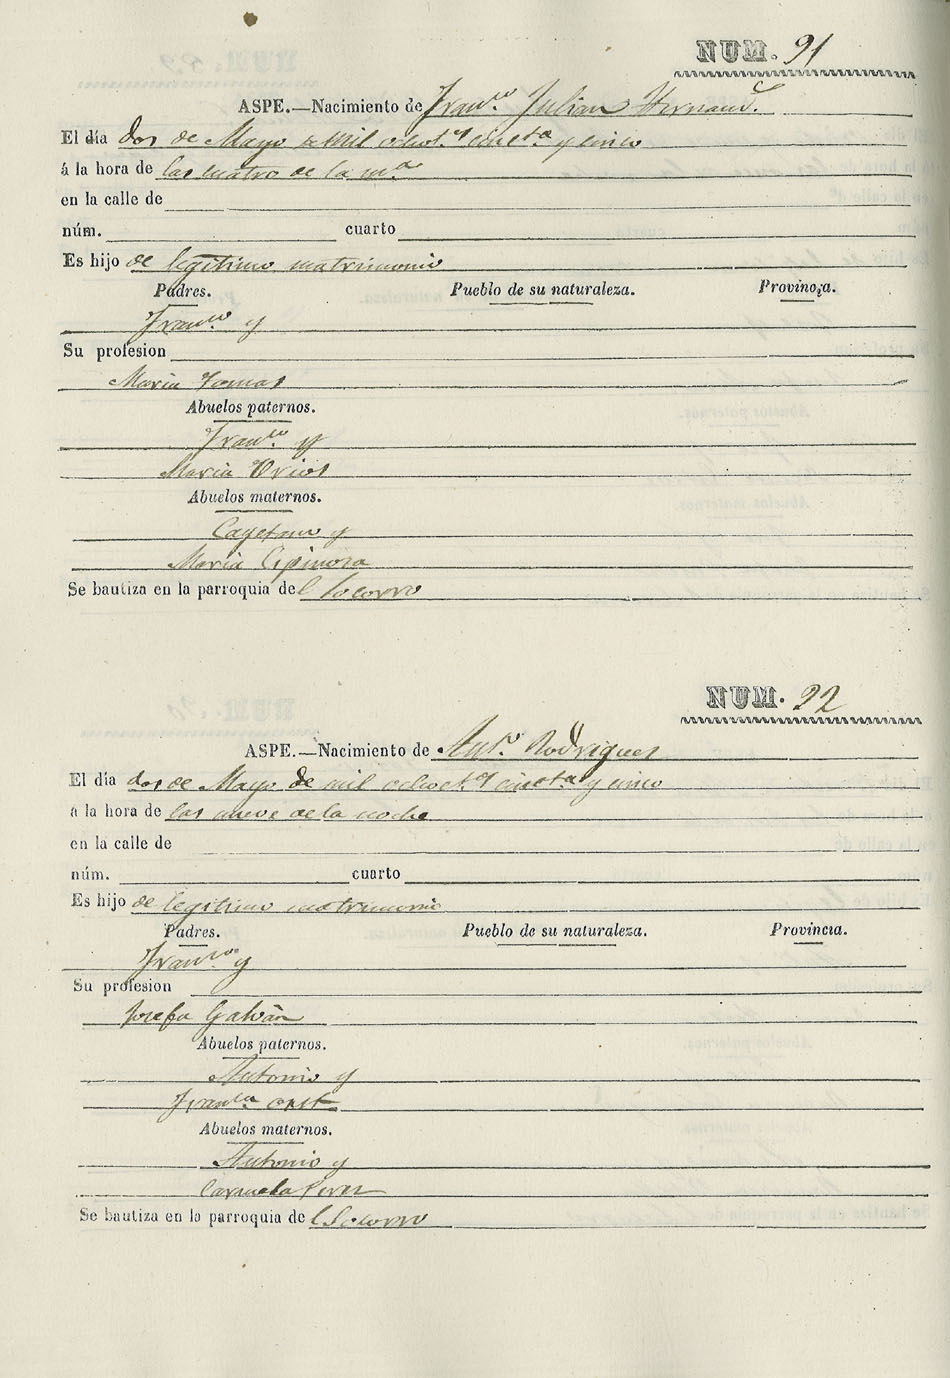 NUM. 91
ASPE.—Nacimiento de Fran.co Julian Hernand.
El día dos de Mayo de mil ochot.s cincta y cinco
á la hora de las cuatro de la ma
en la calle de
núm. cuarto
Es hijo de legitimo matrimonio
Padres. Pueblo de su naturaleza. Provincia.
Fran.co y
Su profesion
Maria Tomas
Abuelos paternos.
Fran.co y
Maria Orios
Abuelos maternos.
Cayetano y
Maria Espinosa
Se bautiza en la parroquia del Socorro
NUM. 92
ASPE.—Nacimiento de Ant.o Rodriguez
El día dos de Mayo de mil ochoct.s cincta y cinco
á la hora de las nueve de la noche
en la calle de
núm. cuarto
Es hijo de legitimo matrimonio
Padres. Pueblo de su naturaleza. Provincia.
Fran.co y
Su profesion
Josefa Galvan
Abuelos paternos.
Antonio y
Fran.ca
Abuelos maternos.
Antonio y
Carmela Perez
Se bautiza en la parroquia del Socorro